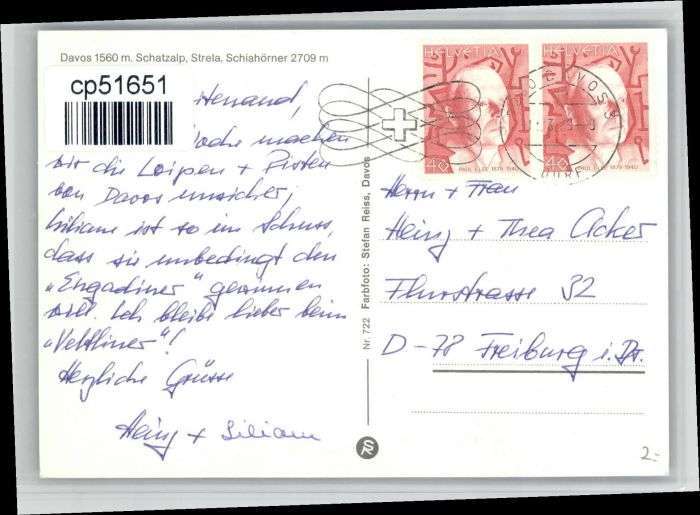 Davos 1560 m. Schatzalp, Strela, Schiahörner 2709 m
cp51651
Woche machen
wir die Loipen + Pisten
von Davos unsicher,
Liliane ist so im Schuss,
dass sie unbedingt den
„Engadiner" gewinnen
will. Ich bleibe lieber beim
„Veltliner"!
Herzliche Grüsse
Heinz + Liliane
Nr. 722 Farbfoto: Stefan Reiss, Davos
HELVETIA
40
PAUL KLEE 1879-1940
HELVETIA
40
PAUL KLEE 1879-1940
Herrn + Frau
Heinz + Thea Acker
Flurstrasse 32
D-78 Freiburg i. Br.
2.-